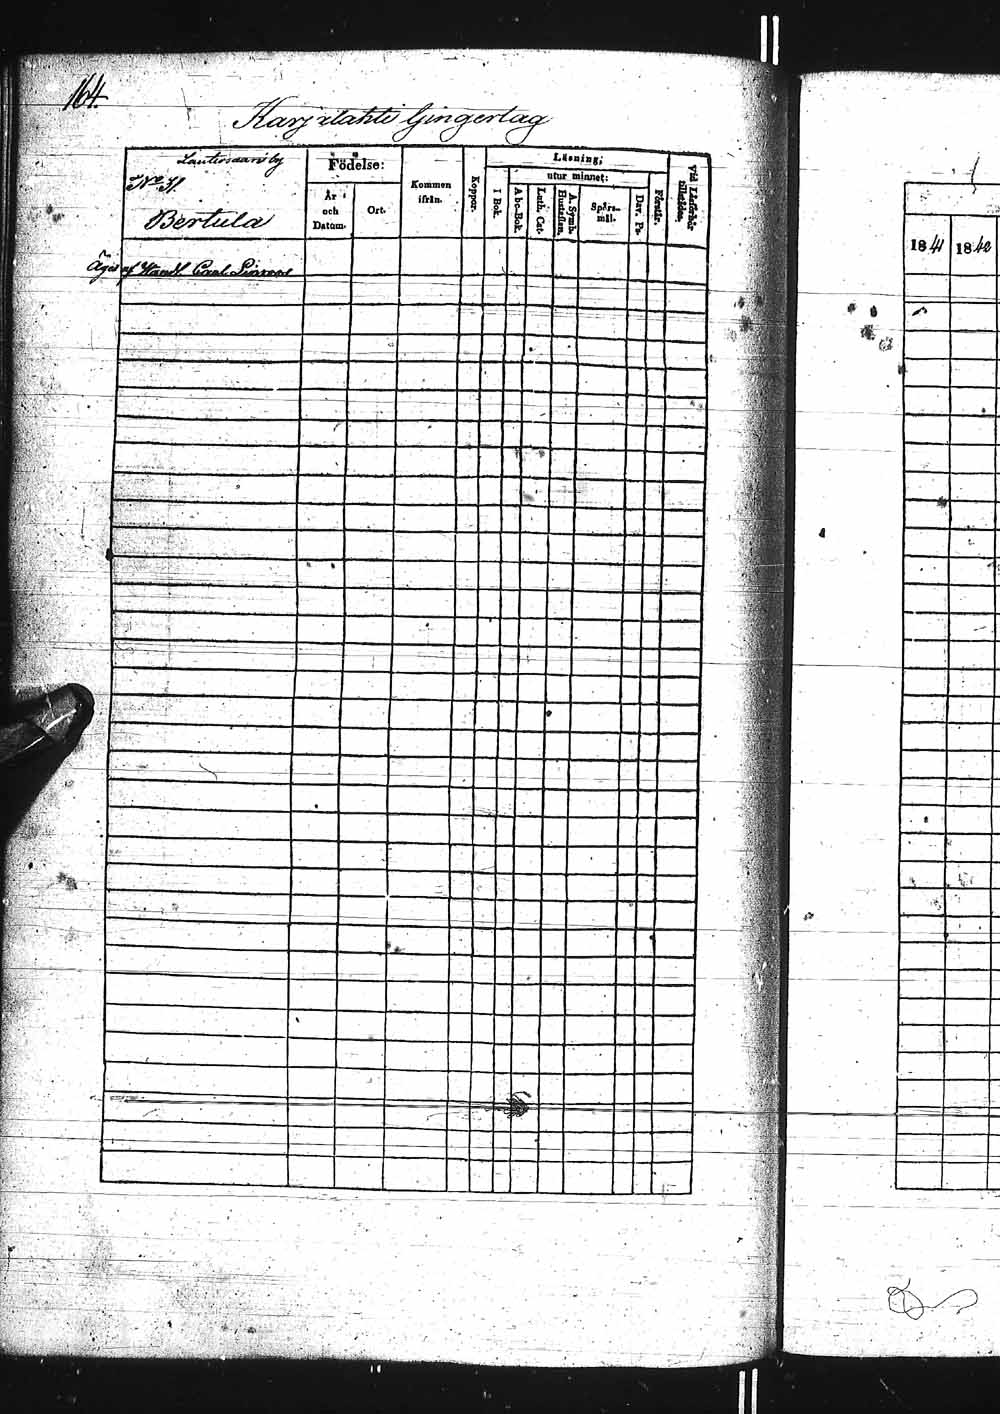 164
Karjalahti Gingerlag
Lautusaari by
No 31
Bertula
Födelse:
År och Datum.
Ort.
Kommen ifrån.
Koppor.
Läsning;
utur minnet:
I Bok.
Abc-Bok.
Luth. Cat.
A. Symb. Hustaflan.
Spörs-mål.
Dav. Ps.
Förstår.
Vid Läsförhör tillstädes.
Äges af Handl. Carl
1841
1842